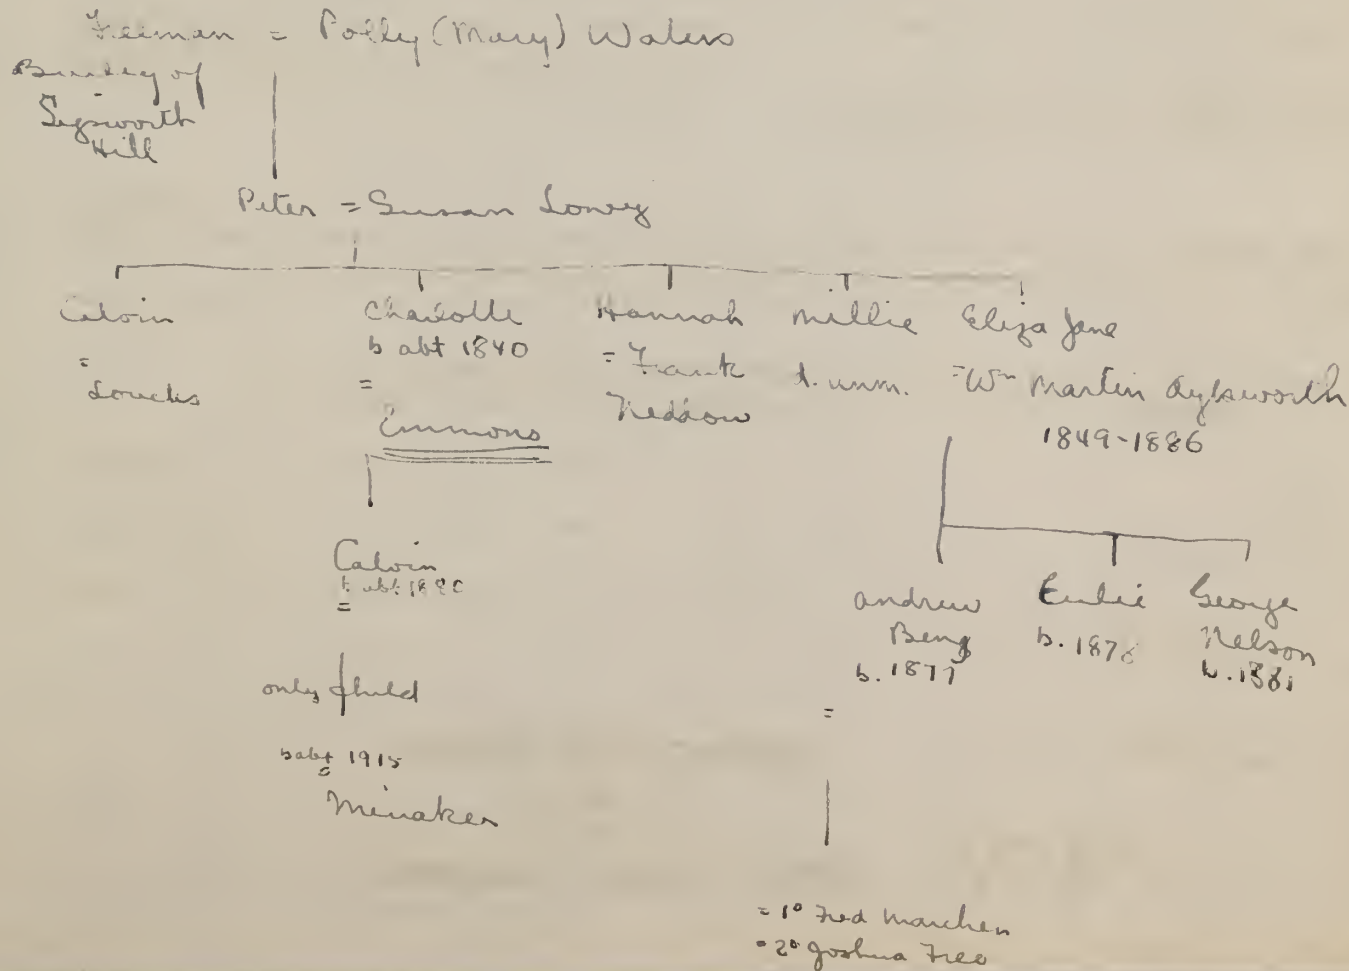 Freeman = Polly (Mary) Waters
Burley of
Sigsworth
Hill
Peter = Susan Lowry
Calvin
=
Loucks
Charlotte
b abt 1840
=
Emmons
Hannah
= Frank
Neddow
Millie
d. unm.
Eliza Jane
= Wm Martin Aylsworth
1849-1886
Calvin
b abt 1880
=
only child
b abt 1915
=
Minaker
Andrew
Benj
b. 1877
=
b. 1878
George
Nelson
b. 1881
= 1° Fred Marchen
= 2° Joshua Free